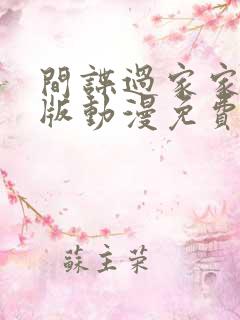 間諜過家家
版動漫免費
蘇主荣